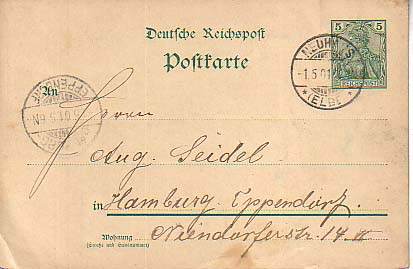 Deutsche Reichspost
5 5
Postkarte
REICHSPOST
NEUHAUS
-1.5.01
* (ELBE) *
An
EPPENDORF
Herrn
Aug. Seidel
in Hamburg. Eppendorf
Niendorferstr. 14 II
Wohnung
(Straße und Hausnummer)